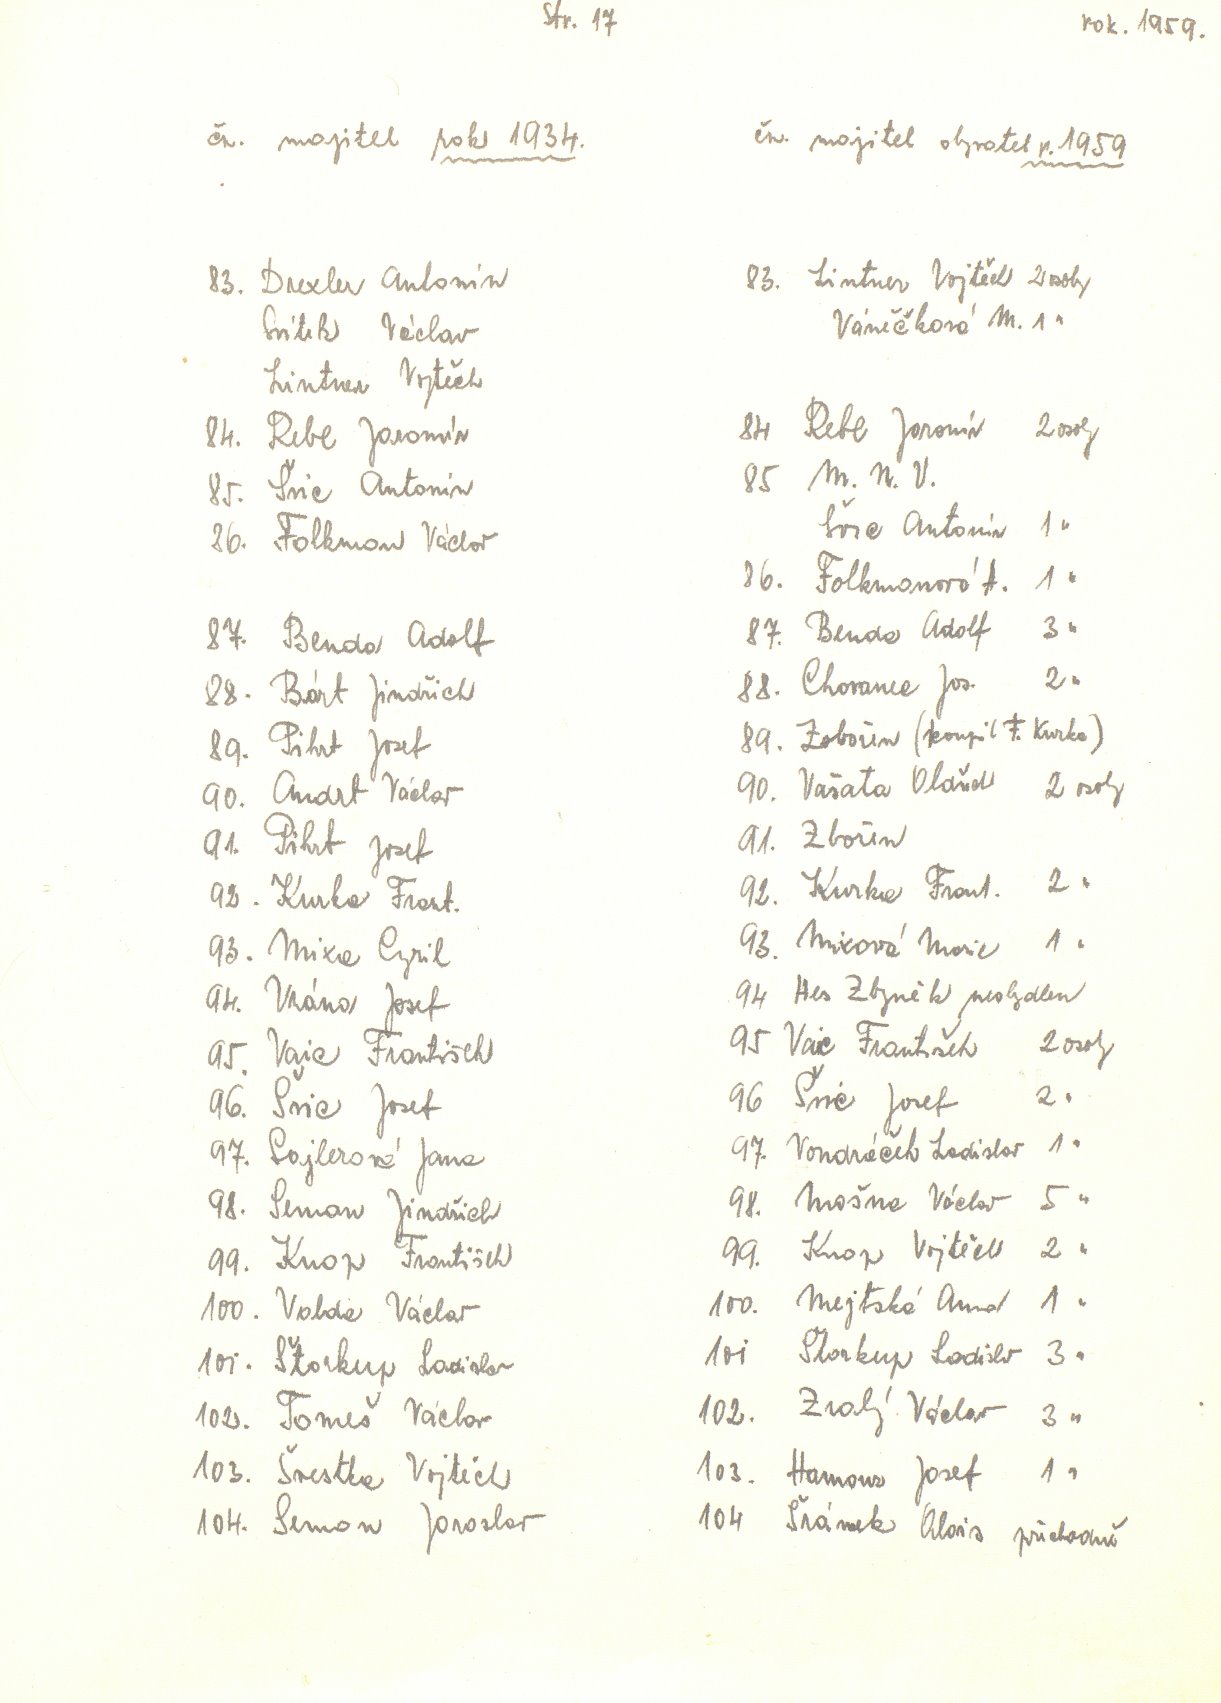 Str. 17
rok. 1959.
čn. majitel rok 1934.
83. Drexler Antonín
Svítek Václav
Lintner Vojtěch
84. Rebl Jaromír
85. Švic Antonín
86. Folkman Václav
87. Benda Adolf
88. Bárt Jindřich
89. Pihrt Josef
90. Andrt Václav
91. Pihrt Josef
92. Kurka Frant.
93. Mixa Cyril
94. Vrána Josef
95. Vaic František
96. Švic Josef
97. Sajlerová Jana
98. Seman Jindřich
99. Knop František
100. Valda Václav
101. Štorkup Ladislav
102. Tomeš Václav
103. Švestka Vojtěch
104. Seman Jaroslav
čn. majitel obyvatel r. 1959
83. Lintner Vojtěch 2 osoby
Váněčková M. 1 "
84 Rebl Jaromír 2 osoby
85 M. N. V.
Švic Antonín 1 "
86. Folkmanová A. 1 "
87. Benda Adolf 3 "
88. Chovanec Jos. 2 "
89. Zbořen (koupil F. Kurka)
90. Vašata Oldřich 2 osoby
91. Zbořen
92. Kurka Frant. 2 "
93. Mixová Marie 1 "
94 Hes Zbyněk neobydlen
95 Vaic František 2 osoby
96 Švic Josef 2 "
97. Vondráček Ladislav 1 "
98. Mošna Václav 5 "
99. Knop Vojtěch 2 "
100. Mejtská Anna 1 "
101 Štorkup Ladislv 3 "
102. Zralý Václav 3 "
103. Hamouz Josef 1 "
104 Šrámek Alois přechodně